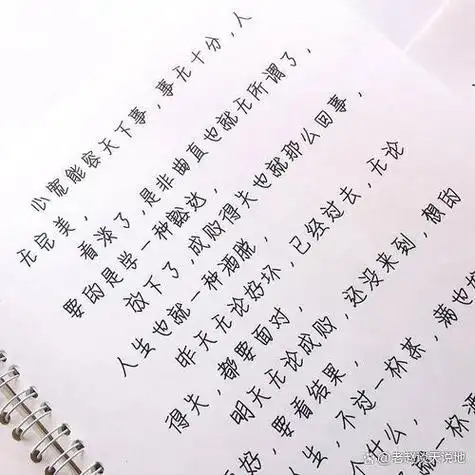 心宽能容天下事，事无十分，人
无完美，
看淡了，是非曲直也就无所谓了，
要的是学一种豁达，
放下了，成败得失也就那么回事，
人生也就一种洒脱，
昨天无论好坏，已经过去，无论
得失，都要面对，
明天无论成败，还没来到，想的
好，要看结果，
生，不过一杯茶，满也
个什么，
一杯酒
@老赵谈天说地